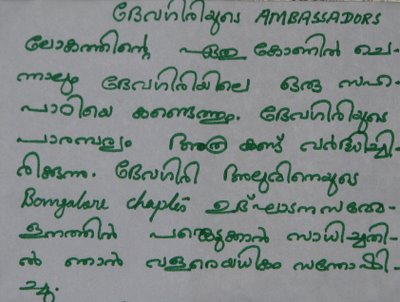 ദേവഗിരിയുടെ AMBASSADORS
ലോകത്തിന്റെ ഏതു കോണിൽ ചെ-
ന്നാലും ദേവഗിരിയിലെ ഒരു സഹ-
പാഠിയെ കണ്ടെത്തും. ദേവഗിരിയുടെ
പാരമ്പര്യം അത്ര കണ്ട് വർദ്ധിച്ചി-
രിക്കുന്നു. ദേവഗിരി അലുമിനെയുടെ
Bangalore chapter ഉദ്ഘാടനസമ്മേ-
ളനത്തിൽ പങ്കെടുക്കാൻ സാധിച്ചതി-
ൽ ഞാൻ വളരെയധികം സന്തോഷി-
ച്ചു.